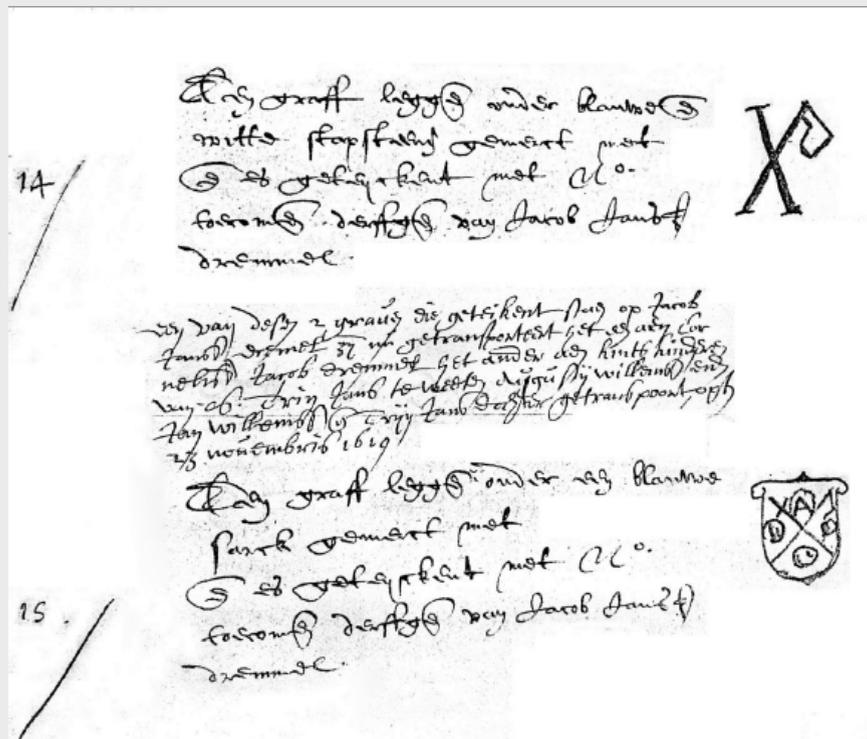 14
Een graff leggen onder blauwe en
witte stapsteen gemerct met
en es geteyckent met No.
toecomen derffgen van Jacob Jans
dremmel.
een van desen 2 graven die geteikent staen op Jacob
Jans dremel is getransporteert het een aen Cor
nelis Jacob dremmel het ander aen kints kinderen
van Trijn Jans te weeten Willems ende
Jan Willems Trijn Jans getransporteert opten
23 novembris 1619
Een graff leggen onder een blauwe
sarck gemerct met
en es geteyckent met No.
15.
toecomen derffgen van Jacob Jans
dremmel.